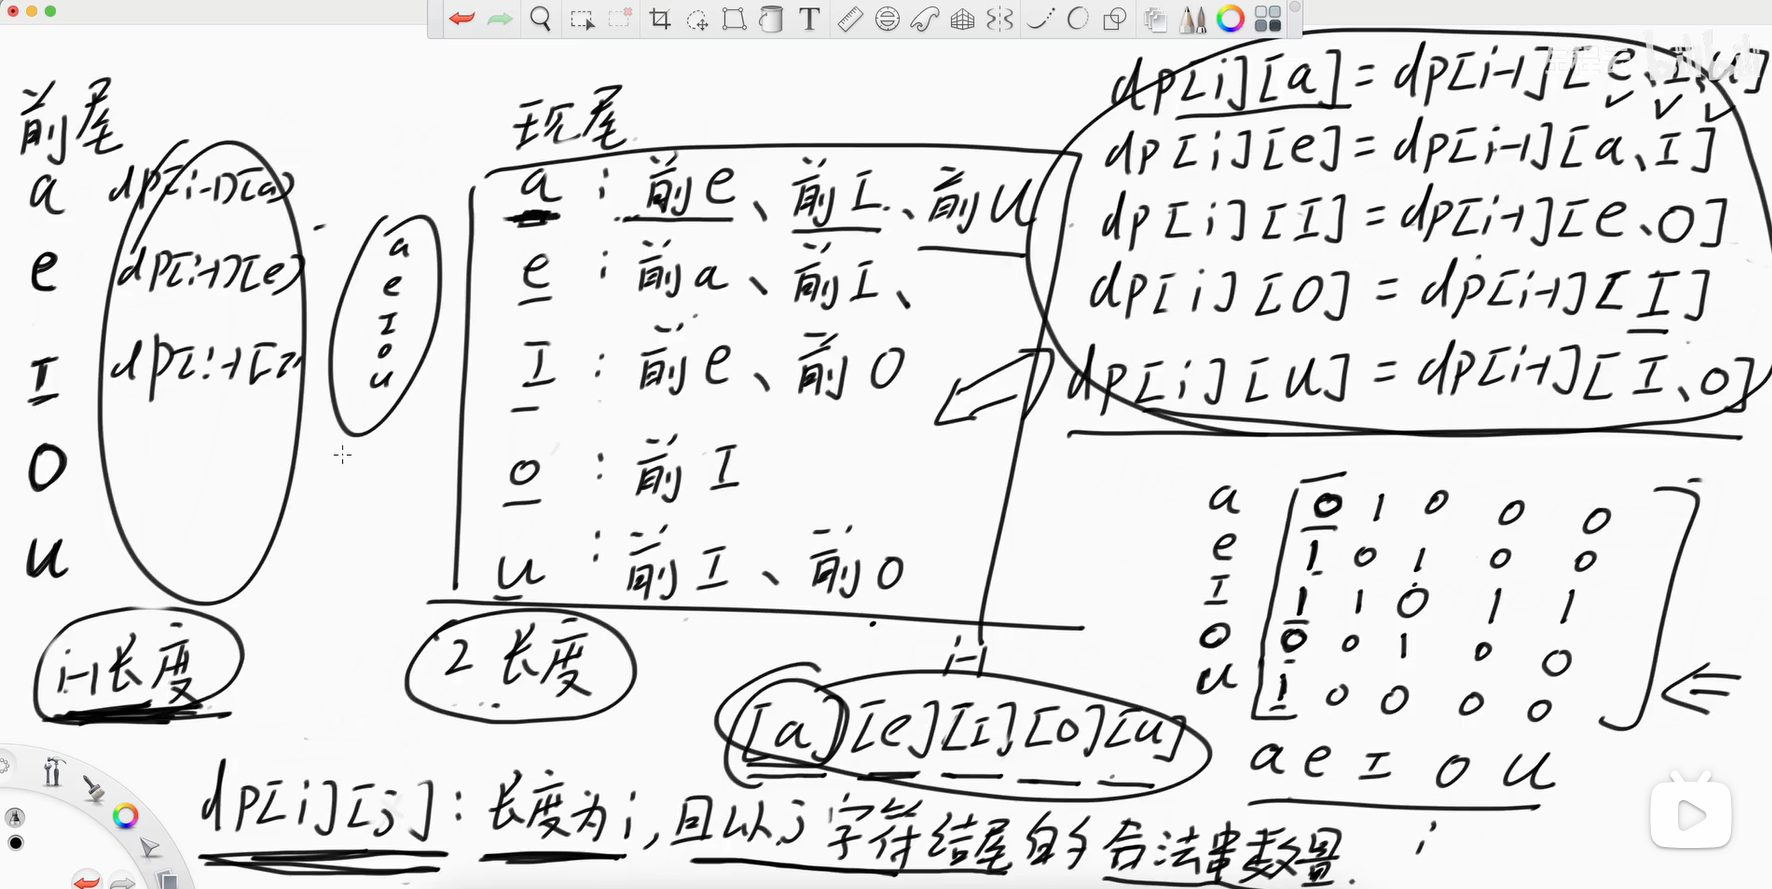 前尾
a dp[i-1][a]
e dp[i-1][e]
I dp[i-1][I
O
u
i-1长度
a
e
I
o
u
现尾
a : 前e、前I、前u
e : 前a、前I、
I : 前e、前O
o : 前I
u : 前I、前O
2 长度
dp[i][a] = dp[i-1][e、I、u]
dp[i][e] = dp[i-1][a、I]
dp[i][I] = dp[i-1][e、O]
dp[i][O] = dp[i-1][I]
dp[i][u] = dp[i-1][I、O]
a [ 0 1 0 0 0 ]
e 1 0 1 0 0
I 1 1 0 1 1
o 0 0 1 0 0
u 1 0 0 0 0
a e I o u
i-1
[a][e][I][O][u]
dp[i][j] : 长度为i,且以j字符结尾的合法串数量. i